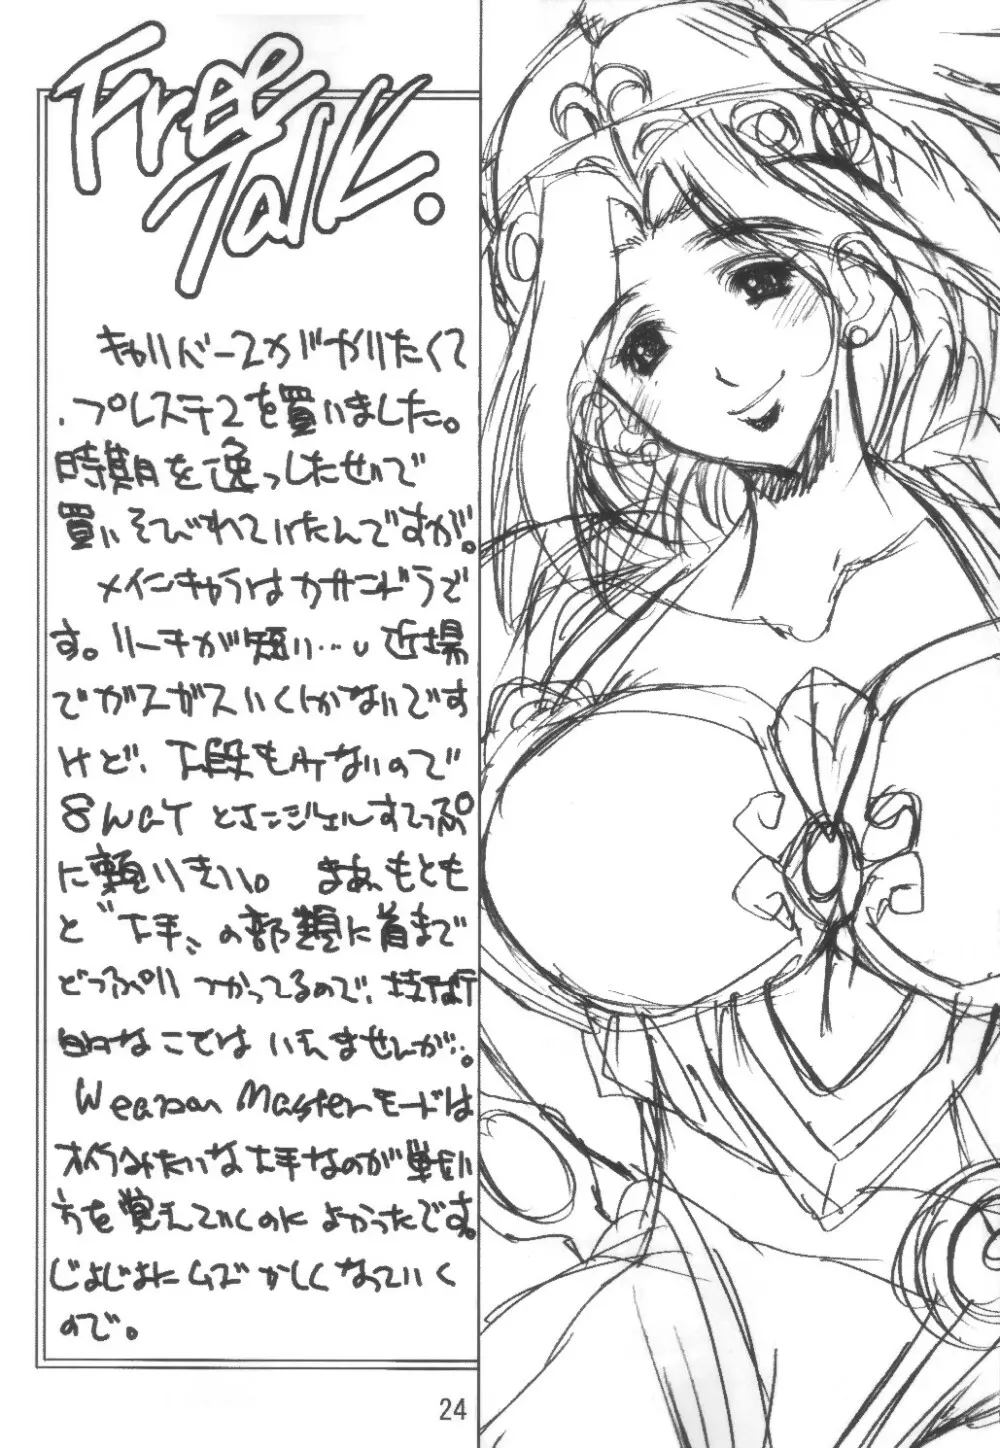 Free
Talk.
キャリバー2がやりたくて
、プレステ2を買いました。
時期を逸っしたせいで
買いそびれていたんですが。
メインキャラはカサンドラで
す。リーチが短い…。近場
でガスガスいくしかないです
けど、下段もみないので
8wayとエンジェルすてっぷ
に頼りきり。 まあ、もとも
と“下手〟の部類に首まで
どっぷりつかってるので、技術
的なことではいえませんが…。
Weapon Masterモードは
オイラみたいな下手なのが戦い
方を覚えていくのによかったです。
じょじょにムズかしくなっていく
ので。
24